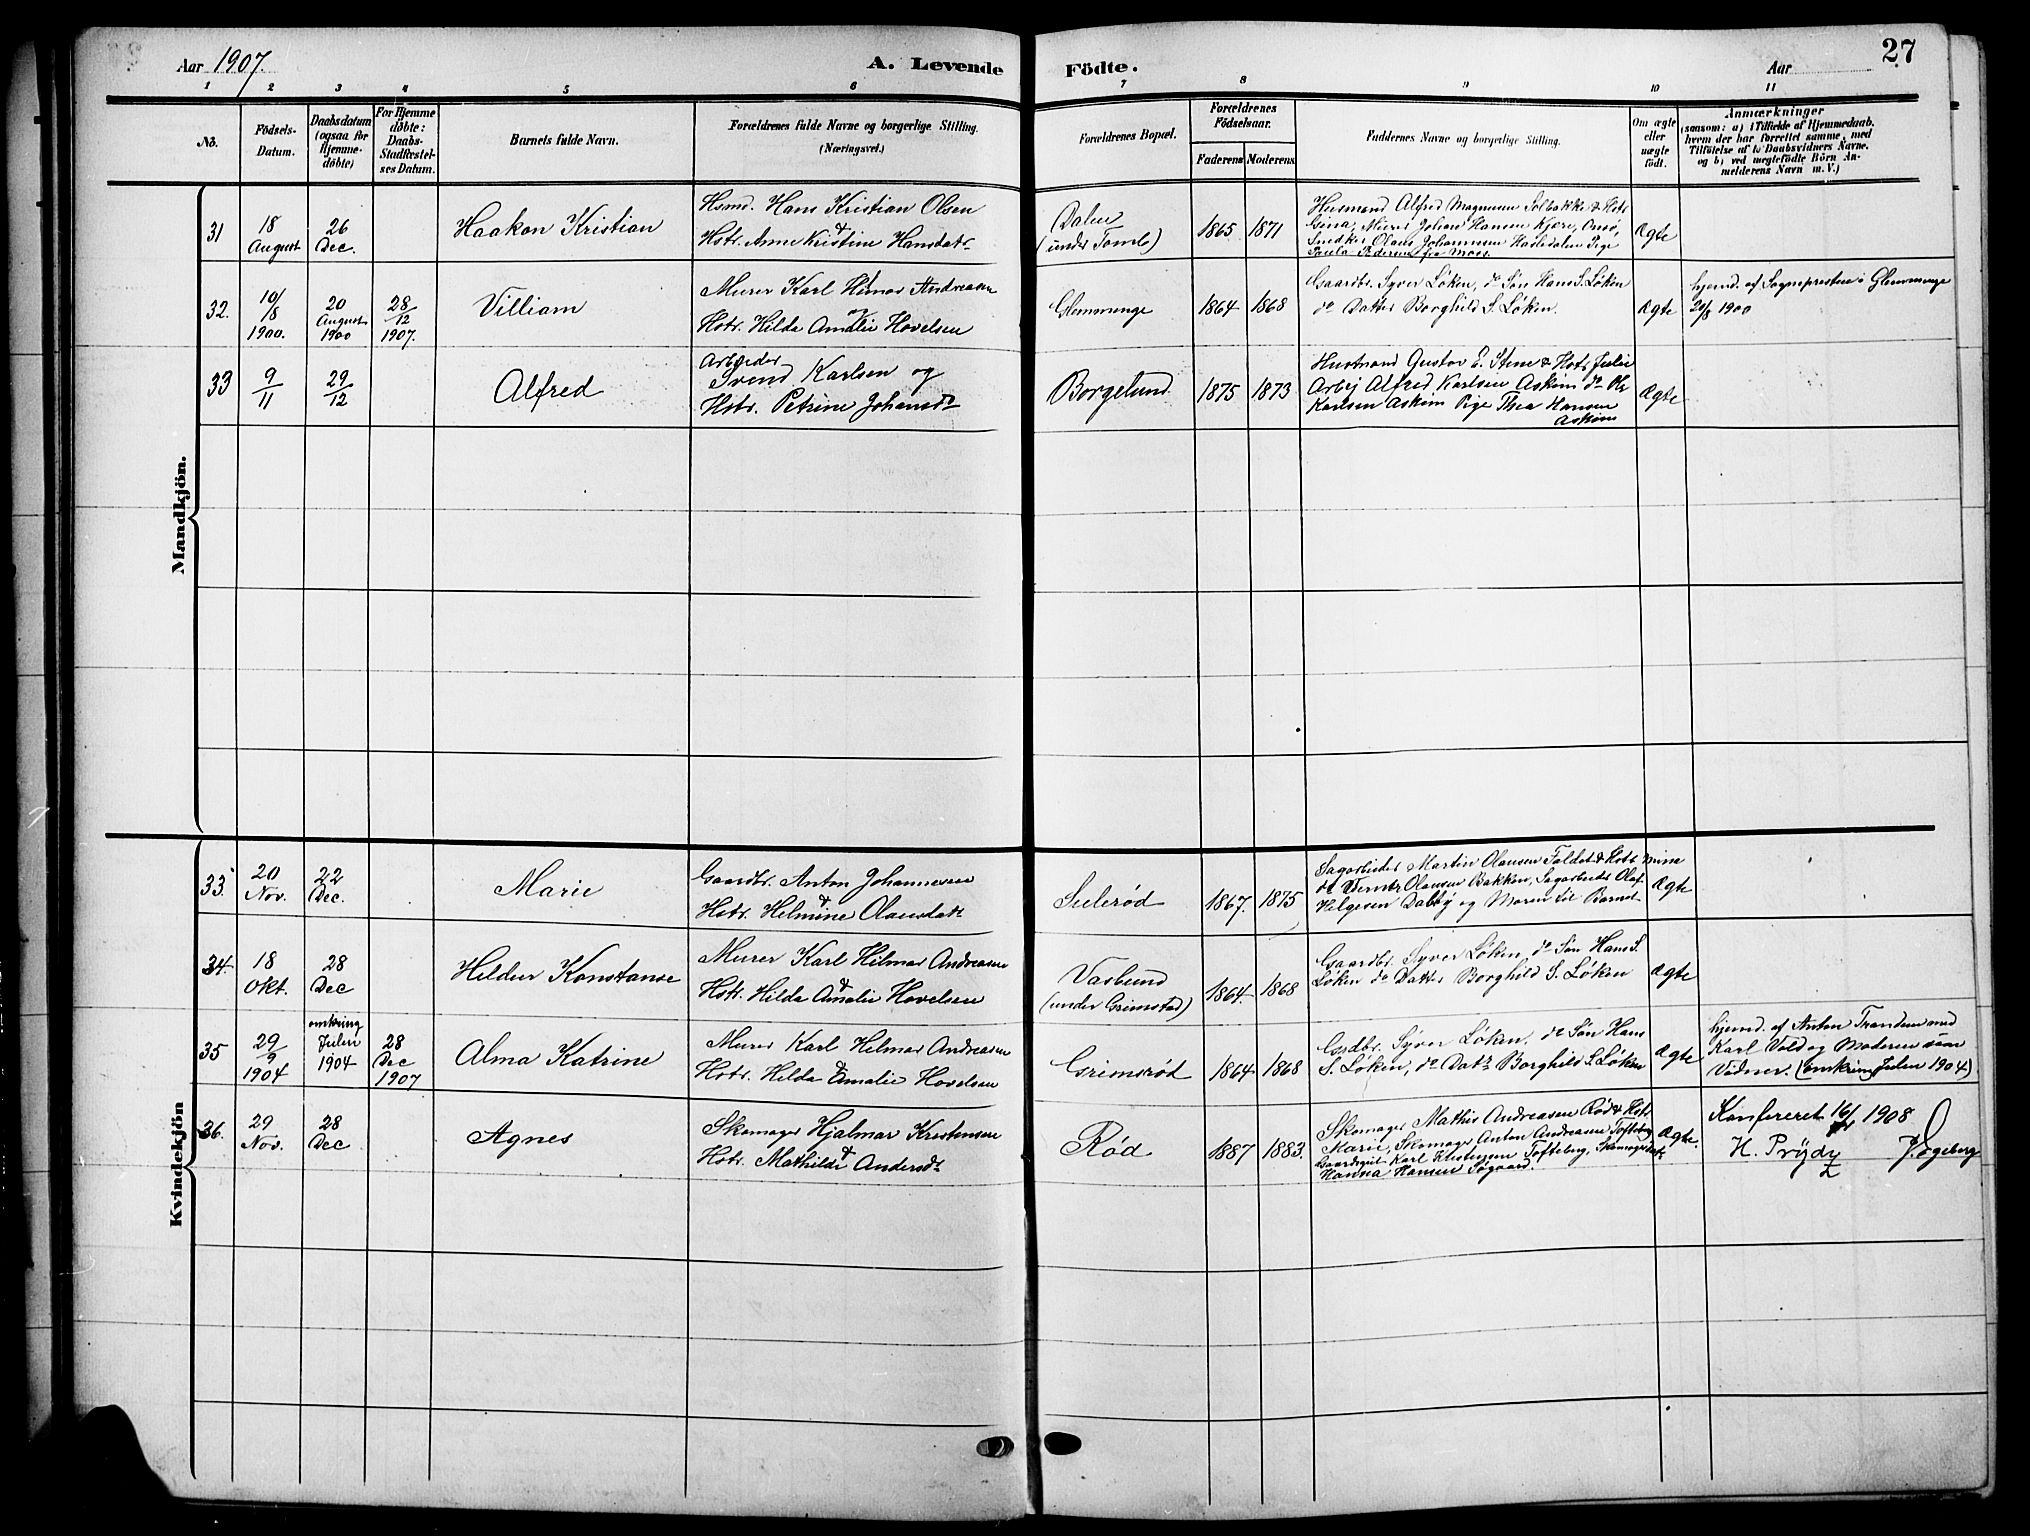 Aar 1907.
A. Levende Födte.
Aar
27
1 2 3 4 5 6 7 8 9 10 11
No.
Födsels-Datum.
Daabsdatum (ogsaa for Hjemmedöbte)
For Hjemmedöbte: Daabs-Stadfæstelses Datum.
Barnets fulde Navn.
Forældrenes fulde Navne og borgerlige Stilling. (Næringsvei.)
Forældrenes Bopæl.
Forældrenes Födselsaar.
Faderens Moderens
Faddernes Navne og borgerlige Stilling.
Om ægte eller uægte födt.
Anmærkninger
(saasom: a) i Tilfælde af Hjemmedaab, hvem der har forrettet samme, med Tilföielse af to Daabsvidners Navne, og b) ved uægtefödte Börn Anmelderens Navn m. V.)
Mandkjön.
31 18 August 26 Dec. Haakon Kristian
Hsmd. Hans Kristian Olsen
& Hstr. Anne Kristine Hansdatr
Dalen (under Tomb) 1865 1871
Husmand Alfred Magnusen Solbakke & Hstr
Gina, Murer Johan Hansen Kjære, Onsö,
Snedker Olaus Johannesen Hasledalen Pige
Paula Pedersen fra Moss.
Ægte
32. 10/8 1900. 20 August 1900 28/12 1907. Villiam
Murer Karl Hilmar Andreasen
& Hstr. Hilda Amalie Hovelsen
Glemmenge 1864 1868
Gaardbr. Syver Løken, do Søn Hans S. Løken
do Datter Borghild S. Løken.
Ægte
hjemd. af Sognepresten i Glemmenge
20/8 1900
33 9/11 29/12 Alfred
Arbeider
Svend Karlsen og
Hstr. Petrine Johansdt
Borgelund 1875 1873
Husmand Gustav E. Stene & Hstr Julie
Arbej Alfred Karlsen Askim do
Karlsen Askim Pige Thea Hansen
Askim
Ægte
Kvindekjön
33 20 Nov. 22 Dec. Marie
Gaardbr. Anton Johannesen
& Hstr. Helmine Olausdatr
Sulerød 1867. 1875
Sagarbeider Martin Olausen Faldet & Hstr Mina
Olausen Bakken, Sagarbeider Olaf
Helgesen Dalby og Moren til Barnet
Ægte
34. 18 Okt. 28 Dec Hildur Konstanse
Murer Karl Hilmar Andreasen
& Hstr. Hilda Amalie Hovelsen
Vaslund (under Grimstad) 1864. 1868
Gaardbr. Syver Løken, do Søn Hans S.
Løken do Datter Borghild S. Løken
Ægte
35 29/9 1904 omkring Julen 1904 28 Dec 1907 Alma Katrine
Murer Karl Hilmar Andreasen
& Hstr. Hilda Amalie Hovelsen
Grimsrød 1864 1868
Grdbr. Syver Løken, do Søn Hans
S. Løken, do Datr Borghild S. Løken
Ægte
hjemd. af Anton Tranden med
Karl Vold og Moderen som
Vidner. (omkring Julen 1904)
36. 29 Nov. 28 Dec Agnes
Skomager Hjalmar Kristensen
& Hstr. Mathilde Andersdt
Rød 1887 1883.
Skomager Mathis Andreasen Rød & Hstr.
Marie, Skomager Anton Andreasen Tofteberg
Gaardsgut Karl Kristensen Tofteberg, Skomagerdatr
Hanna Hansen Søgaard.
Ægte.
Konfereret 16/4 1908
H. Prydz